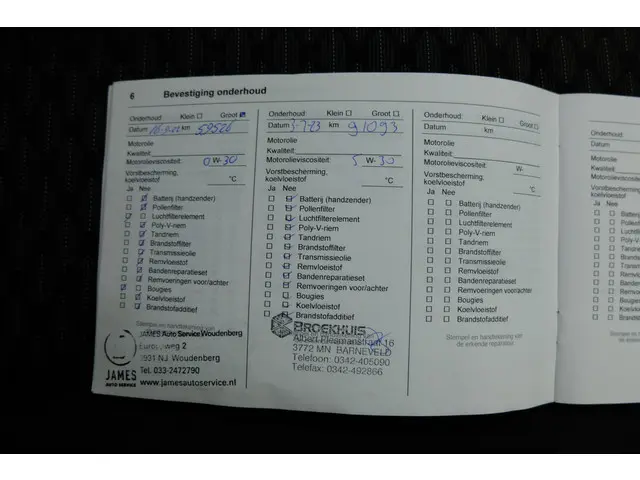 6 Bevestiging onderhoud
Onderhoud: Klein Groot
Datum km 59526
Motorolie
Kwaliteit:
Motorolieviscositeit: 0 W- 30
Vorstbescherming,
koelvloeistof °C
Ja Nee
Batterij (handzender)
Pollenfilter
Luchtfilterelement
Poly-V-riem
Tandriem
Brandstoffilter
Transmissieolie
Remvloeistof
Bandenreparatieset
Remvoeringen voor/achter
Bougies
Koelvloeistof
Brandstofadditief
Stempel en handtekening van
JAMES Auto Service Woudenberg
Europaweg 2
3931 NJ Woudenberg
Tel. 033-2472790
www.jamesautoservice.nl
JAMES
AUTO SERVICE
Onderhoud: Klein Groot
Datum 3-7-23 km 91093
Motorolie
Kwaliteit:
Motorolieviscositeit: 5 W- 30
Vorstbescherming,
koelvloeistof °C
Ja Nee
Batterij (handzender)
Pollenfilter
Luchtfilterelement
Poly-V-riem
Tandriem
Brandstoffilter
Transmissieolie
Remvloeistof
Bandenreparatieset
Remvoeringen voor/achter
Bougies
Koelvloeistof
Brandstofadditief
BROEKHUIS
Albert Plesmanstraat 16
3772 MN BARNEVELD
Telefoon: 0342-405090
Telefax: 0342-492866
Onderhoud: Klein Groot
Datum km
Motorolie
Kwaliteit:
Motorolieviscositeit: W-
Vorstbescherming,
koelvloeistof °C
Ja Nee
Batterij (handzender)
Pollenfilter
Luchtfilterelement
Poly-V-riem
Tandriem
Brandstoffilter
Transmissieolie
Remvloeistof
Bandenreparatieset
Remvoeringen voor/achter
Bougies
Koelvloeistof
Brandstofadditief
Stempel en handtekening van
de erkende reparateur.
Onderhoud:
Datum
Motorolie
Kwaliteit:
Motorolieviscositeit
Vorstbescherming,
koelvloeistof
Ja Nee